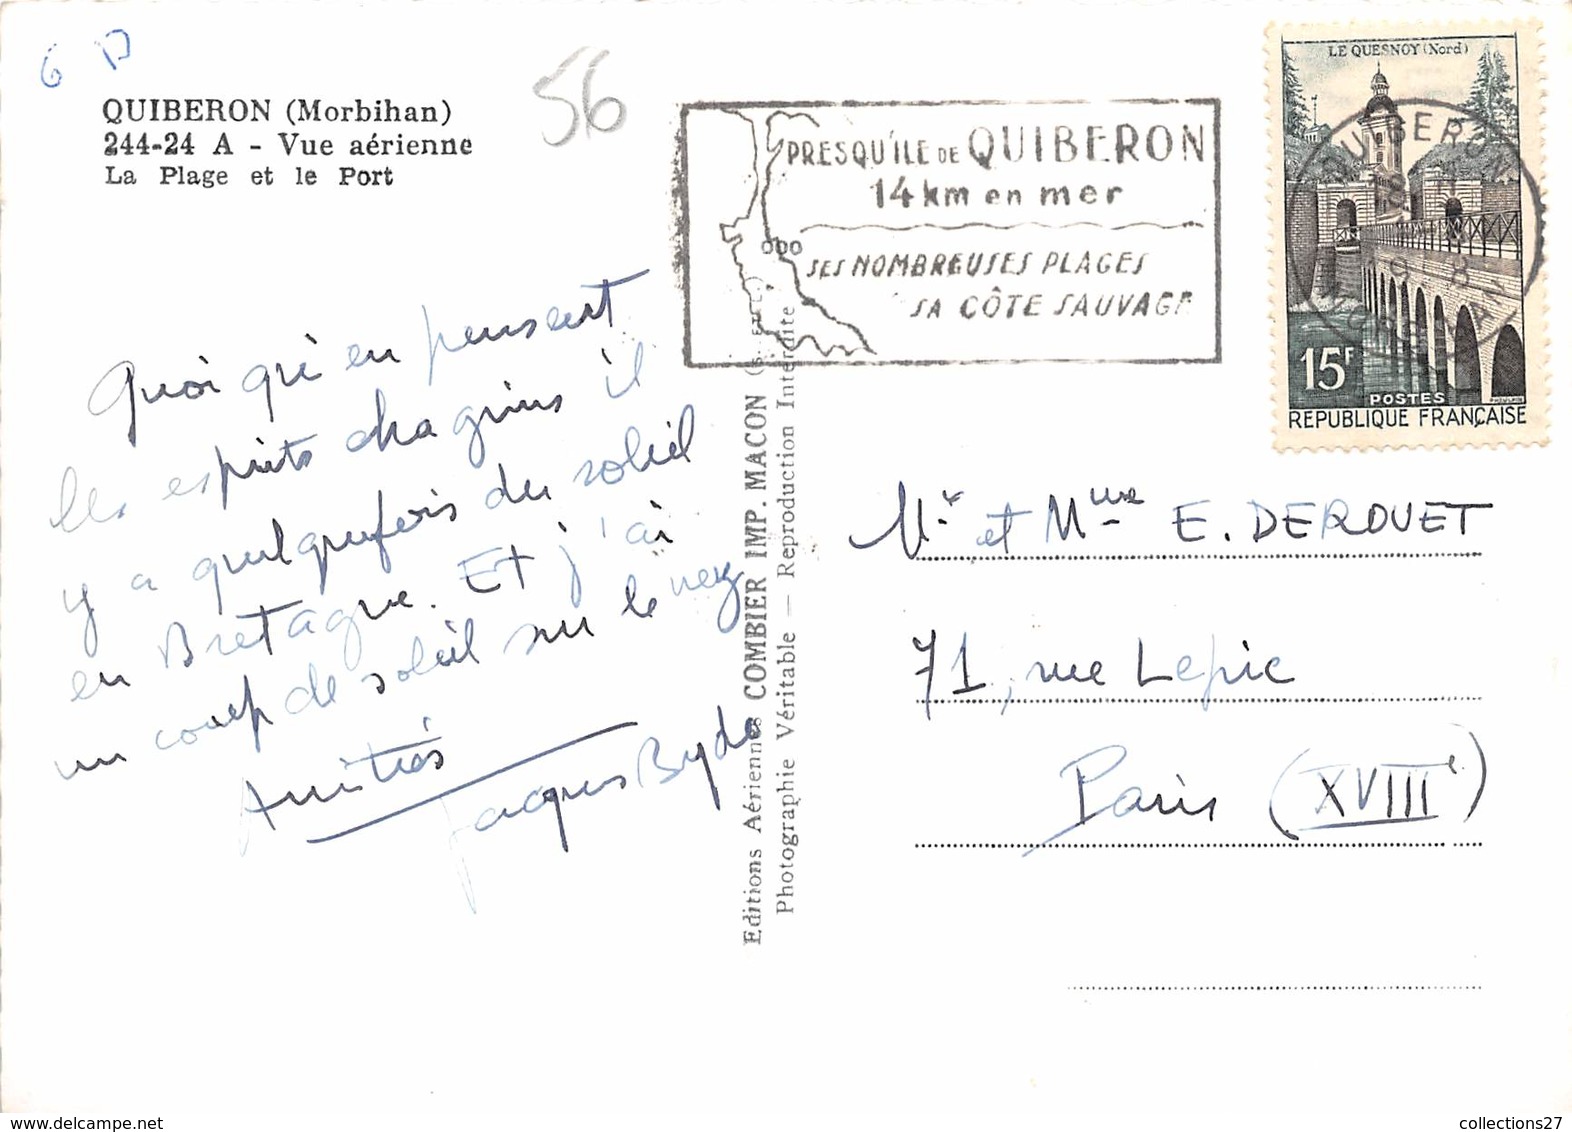 6 D
56
QUIBERON (Morbihan)
244-24 A - Vue aérienne
La Plage et le Port
PRESQU'ÎLE DE QUIBERON
14 km en mer
SES NOMBREUSES PLAGES
SA CÔTE SAUVAGE
LE QUESNOY (Nord)
QUIBERON
MORBIHAN
15F
POSTES
REPUBLIQUE FRANÇAISE
Quoi qu'en pensent
les esprits chagrins il
y a quelquefois du soleil
en Bretagne. Et j'ai
un coup de soleil sur le nez
Amitiés
Jacques
Editions Aériennes COMBIER IMP. MACON
Photographie Véritable — Reproduction Interdite
Mr. et Mme E. DEROUET
71, rue Lepic
Paris (XVIIIe)
collections27